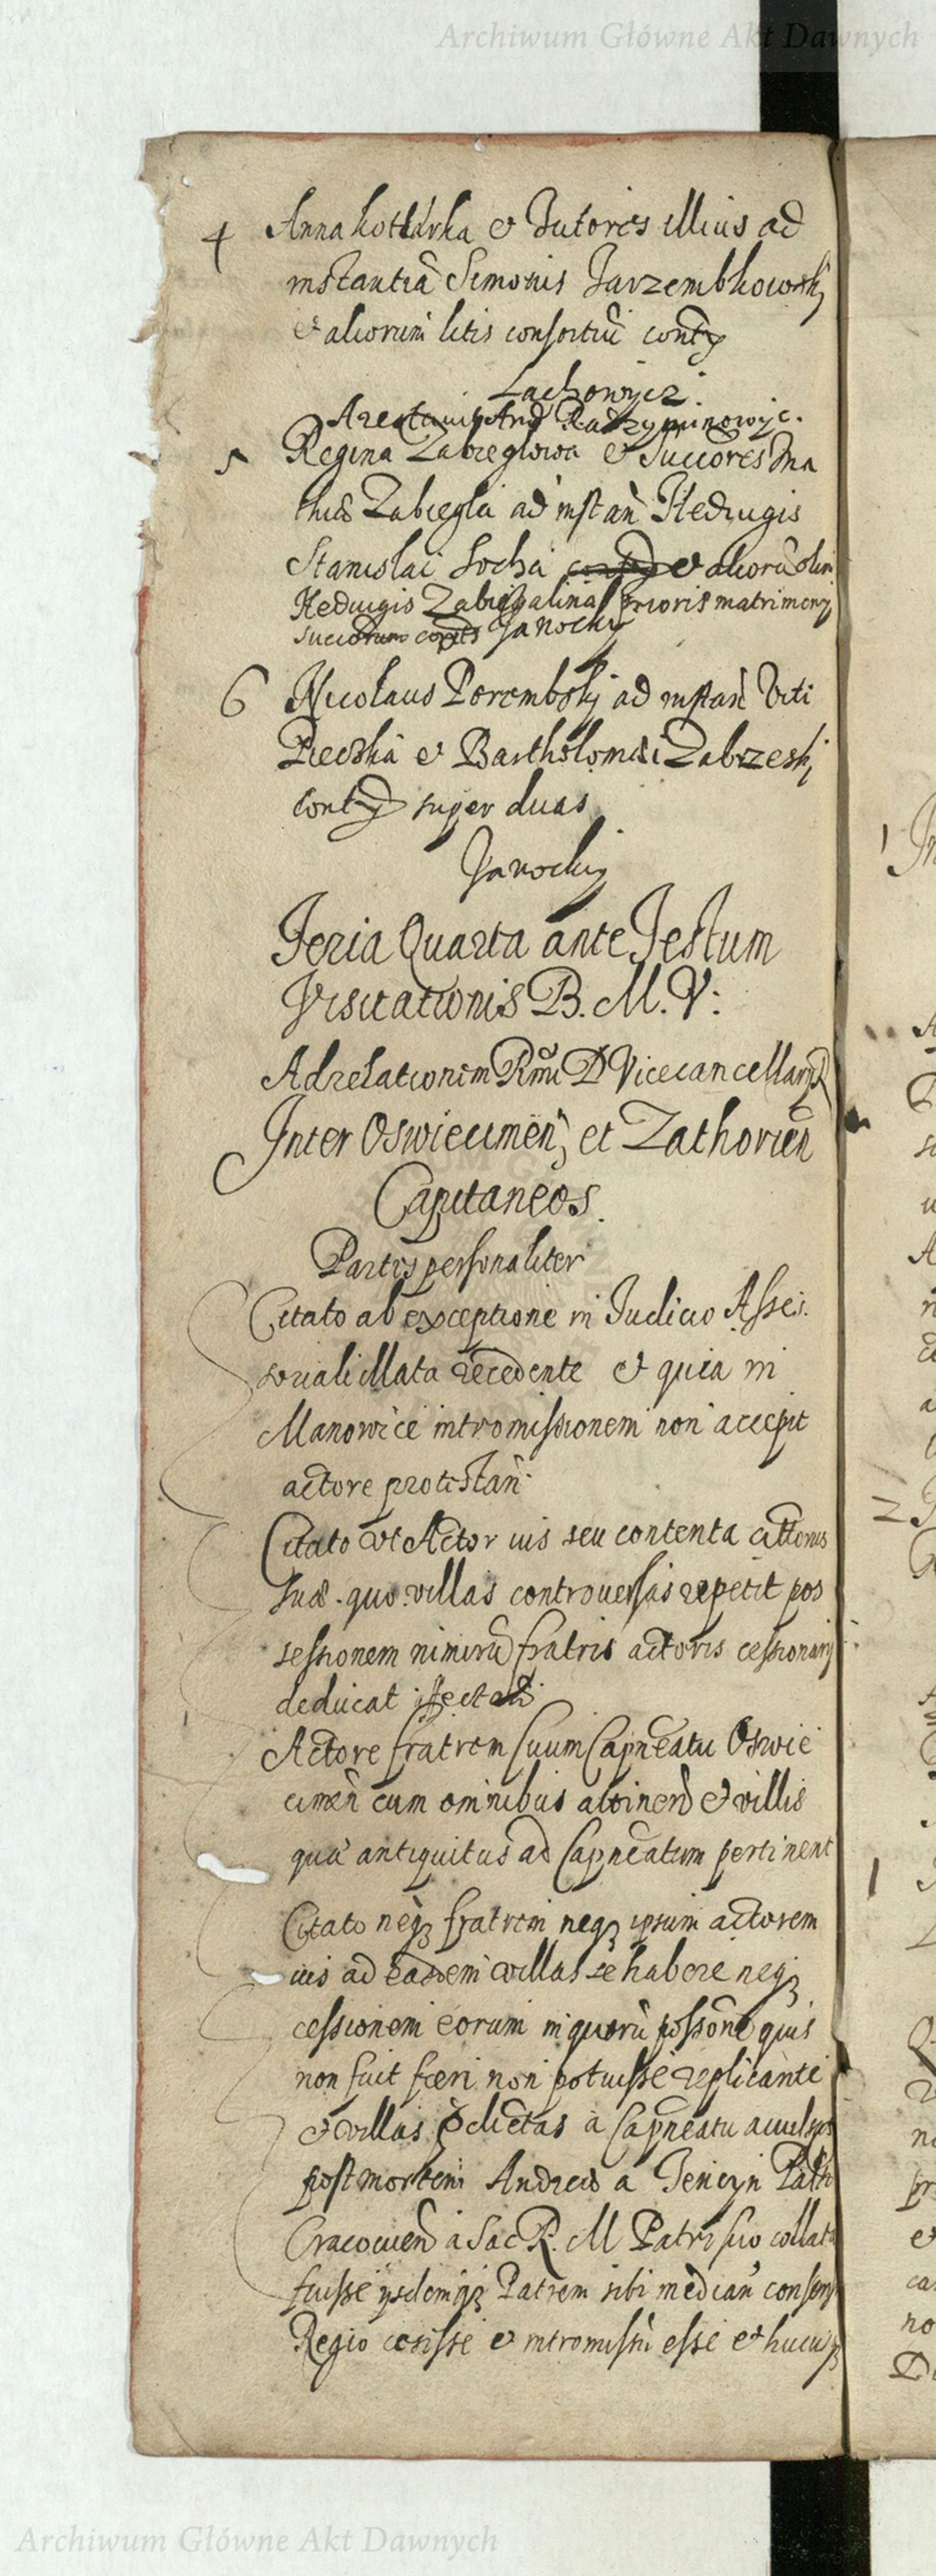 Archiwum Główne Akt Dawnych
4 Anna kotlarka et Tutores illius ad
instantiã Simonis Jarzembkowskj
et aliorum litis consortiũ contẽ
Lachowycz.
And Radzyminowyc.
5 Regina Zabieglowa et Succores Ma
thiæ Zabiegla ad instañ Hedvigis
Stanislai Socha et aliorũ olim
Hedvigis Zabieglina prioris matrimony
Janocky
6 Nicolaus Porembskj ad instañ Viti
et Bartholomæi Zabrzeskj
super duas
Janocky
Feria Quarta ante Festum
Visitationis B. M. V:
Ad relationem Rmi D Vicecancellarij
Inter Oswiecimeñ, et Zathorieñ
Capitaneos.
Partes personaliter
Citato ab exceptione in Judicio Asses.
soriali illata recedente et quia in
Manowice intromissionem non accepit
actore protestañ
Citato vt Actor ius seu contenta
suæ. quo. villas controuersas repetit pos
sessionem nimirũ fratris actoris cessionarij
deducat
Actore fratrem suum Capneatu Oswie
cimeñ cum omnibus attineñ et villis
quæ antiquitus ad Capneatum pertinent
Citato neq fratrem neq ipsum actorem
ius ad easdem villas se habere neq
cessionem eorum in quorũ possone quis
non fuit fieri non potuisse replicante
et villas pdictas a Capneatu auulsas
post mortem Andreæ a Tenczyn Palti
Cracouieñ a Sac R. M Patri suo collatas
fuisse ijsdemq Patrem sibi mediañ consensu
Regio cessisse et intromissũ esse et hucusq
Archiwum Główne Akt Dawnych